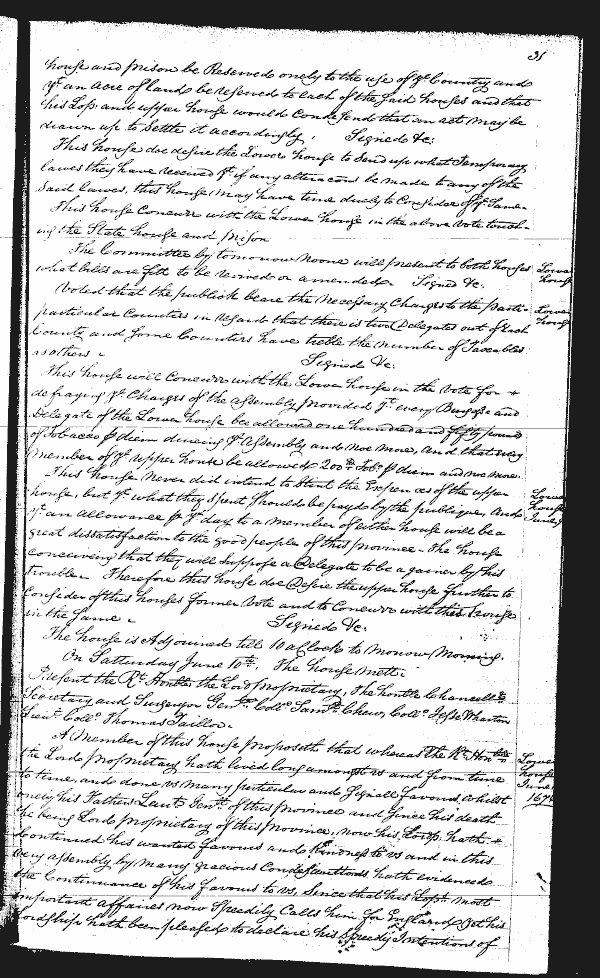 31
house and prison be Reserved onely to the use of ye County and
yt an acre of land be reserved to each of the said houses and that
his Lopp and upper house would Condesend that an act may be
drawn up to Settle it accordingly. Signed &c:
This house doe desire the Lower house to Send up what Temporary
lawes they have received yt if any alteracons be made to any of the
said lawes, this house may have time duely to Consider of ye Same
This house Concurre with the Lower house in the above Vote touch-
ing the State house and prison
The Committee by tomorrow noone will present to both houses
Lower
house
what bills are fitt to be revived or amended. Signd &c.
Voted that the publick beare the necessary Charges to the parti-
Lower
house
particular Counties in regard that there is two Delegates out of each
County and some Counties have treble the number of Taxeables
as others. Signed &c:
This house will Concurre with the Lower house in the Vote for
defraying ye Charges of the assembly provided yt every Burgesse and
Delegate of the Lower house be allowed one hundred and fifty pound
of Tobacco p diem dureing ye Assembly and noe more, and that every
member of ye upper house be allowed 200lb Tobo p diem and noe more.
This house never did intend to Stint the Expences of the upper
Lower
house
June
house, but yt what they Spent Should be payd by the publique, And
yt an allowance p ye day to a member of either house will be a
great dissatisfaction to the good people of this province. The house
conceiveing that they will Suppose a Delegate to be a gainer by his
trouble. Therefore this house doe Desire the upper house further to
Consider of this houses former Vote and to Concurre with this house
in the Same. Signed &c.
The house is Adjourned till 10 a Clock to Morrow Morning.
On Satturday June 10th. The house mett.
Present the Rt Honble the Lord proprietary, The honble Chancellr
Secretary and Surveyor Genll Collo Samll Chew, Collo Jesse Wharton
Lieut Collo Thomas Taillor.
A Member of this house proposeth that whereas the Rt Honble
the Lord proprietary hath lived long amongst us and from time
Lower
house
June
167
to time, and done us many particular and Signall favours, whilst
onely his Fathers Leut Genll of this province and Since his death
he being Lord proprietary of this province, now his Lopp hath
Continued his wonted favours and kindness to us and in this
very assembly by many gracious Condesentions hath evidenced
the Continuance of his favours to us, Since that his Lopps most
important affaires now Speedily Calls him for England yet his
Lordship hath been pleased to declare his Speedy Intentions of